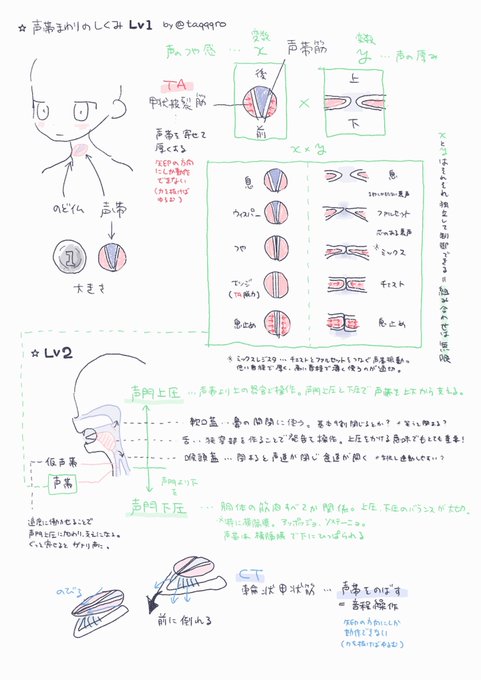 ☆ 声帯まわりのしくみ Lv1 by @taqqqno
変数
声のつや感 … x
声帯筋
変数
y … 声の厚み
TA
甲状披裂筋
声帯を寄せて
厚くする
矢印の方向
にしか動作
できない
(力を抜けば
ゆるむ)
後
前
×
上
下
x × y
のど仏
声帯
1
大きさ
息
ウィスパー
つや
エッジ
息止め
息
ファルセット
芯のある裏声
※ミックス
チェスト
息止め
xとyはそれぞれ独立して制御できる
組み合わせは無限
※ミックスレジスタ … チェストとファルセットをつなぐ声帯振動。
低い音程で厚く、高い音程で薄く使うのが適切。
☆ Lv2
声門上圧 … 声帯より上の器官で操作。声門上圧と下圧で声帯を上下から支える。
軟口蓋 … 鼻の開閉に使う。
舌 … 狭窄部を作ることで発音を操作。上圧をかける意味でもとても重要!
喉頭蓋 … 閉まると声道が閉じ食道が開く
仮声帯
声帯
声門より下
声門下圧 … 胴体の筋肉すべてが関係。上圧、下圧のバランスが大切。
※特に横隔膜。アッポッジョ、ソステーニョ。
声帯は横隔膜で下にひっぱられる
適度に働かせることで
声門上圧に加わり、支えになる。
ぐっと寄せるとガナリ声に。
のびる
前に倒れる
CT
輪状甲状筋 … 声帯をのばす
= 音程操作
矢印の方向にしか
動作できない
(力を抜けばゆるむ)